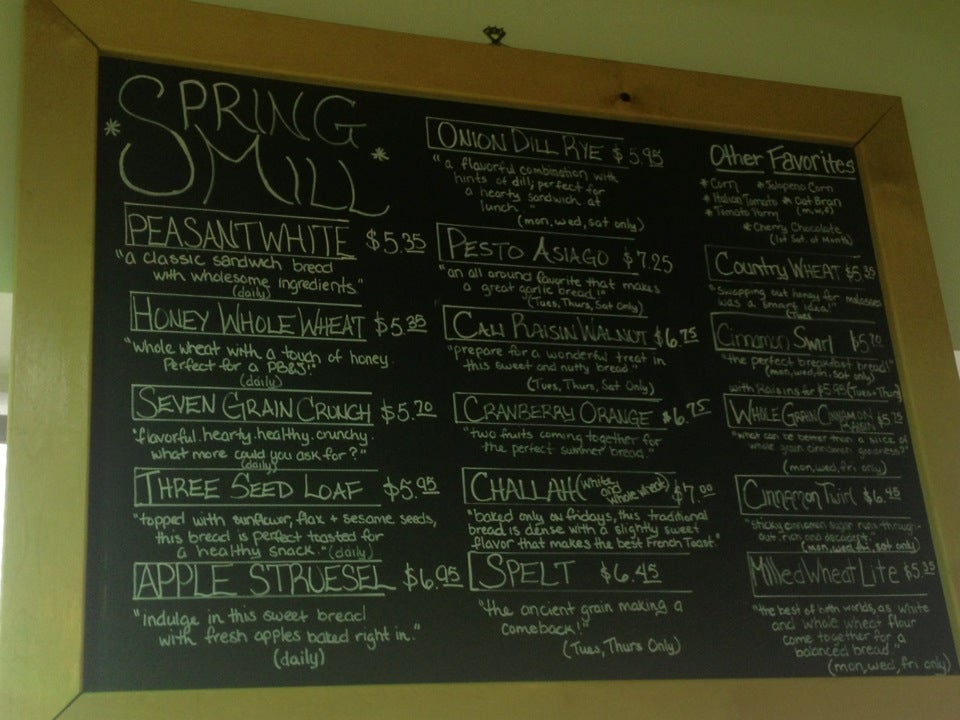 SPRING
* MILL *
PEASANT WHITE $5.35
"a classic sandwich bread
with wholesome ingredients."
(daily)
HONEY WHOLE WHEAT $5.35
"whole wheat with a touch of honey.
Perfect for a PB&J!"
(daily)
SEVEN GRAIN CRUNCH $5.70
"flavorful. hearty. healthy. crunchy.
what more could you ask for?"
(daily)
THREE SEED LOAF $5.95
"topped with sunflower, flax + sesame seeds,
this bread is perfect toasted for
a healthy snack." (daily)
APPLE STRUESEL $6.95
"indulge in this sweet bread
with fresh apples baked right in."
(daily)
ONION DILL RYE $5.95
"a flavorful combination with
hints of dill; perfect for
a hearty sandwich at
lunch."
(mon, wed, sat only)
PESTO ASIAGO $7.25
"an all around favorite that makes
a great garlic bread."
(Tues, Thurs, Sat Only)
CALI RAISIN WALNUT $6.75
"prepare for a wonderful treat in
this sweet and nutty bread."
(Tues, Thurs, Sat Only)
CRANBERRY ORANGE $6.75
"two fruits coming together for
the perfect summer bread."
CHALLAH (white and whole wheat) $7.00
"baked only on fridays, this traditional
bread is dense with a slightly sweet
flavor that makes the best French Toast."
SPELT $6.45
"the ancient grain making a
comeback!"
(Tues, Thurs Only)
Other Favorites
* Corn * Jalapeno Corn
* Italian Tomato * Oat Bran
* Tomato Parm (m,w,f)
* Cherry Chocolate
(1st Sat. of Month)
Country WHEAT $5.35
"Swapping out honey for molasses
was a smart idea."
(Tues
Cinnamon Swirl $5.70
"the perfect breakfast bread!"
(mon, wed, fri, sat only)
with Raisins for $5.95 (Tues + Thurs)
WHOLE GRAIN CINNAMON RAISIN $5.75
"what can be better than a slice of
whole grain cinnamon goodness?"
(mon, wed, fri only)
Cinnamon Twirl $6.45
"sticky cinnamon sugar runs through-
out. rich and decadent."
(mon, wed, fri, sat only)
Milled Wheat Lite $5.35
"the best of both worlds, as white
and whole wheat flour
come together for a
balanced bread."
(mon, wed, fri only)